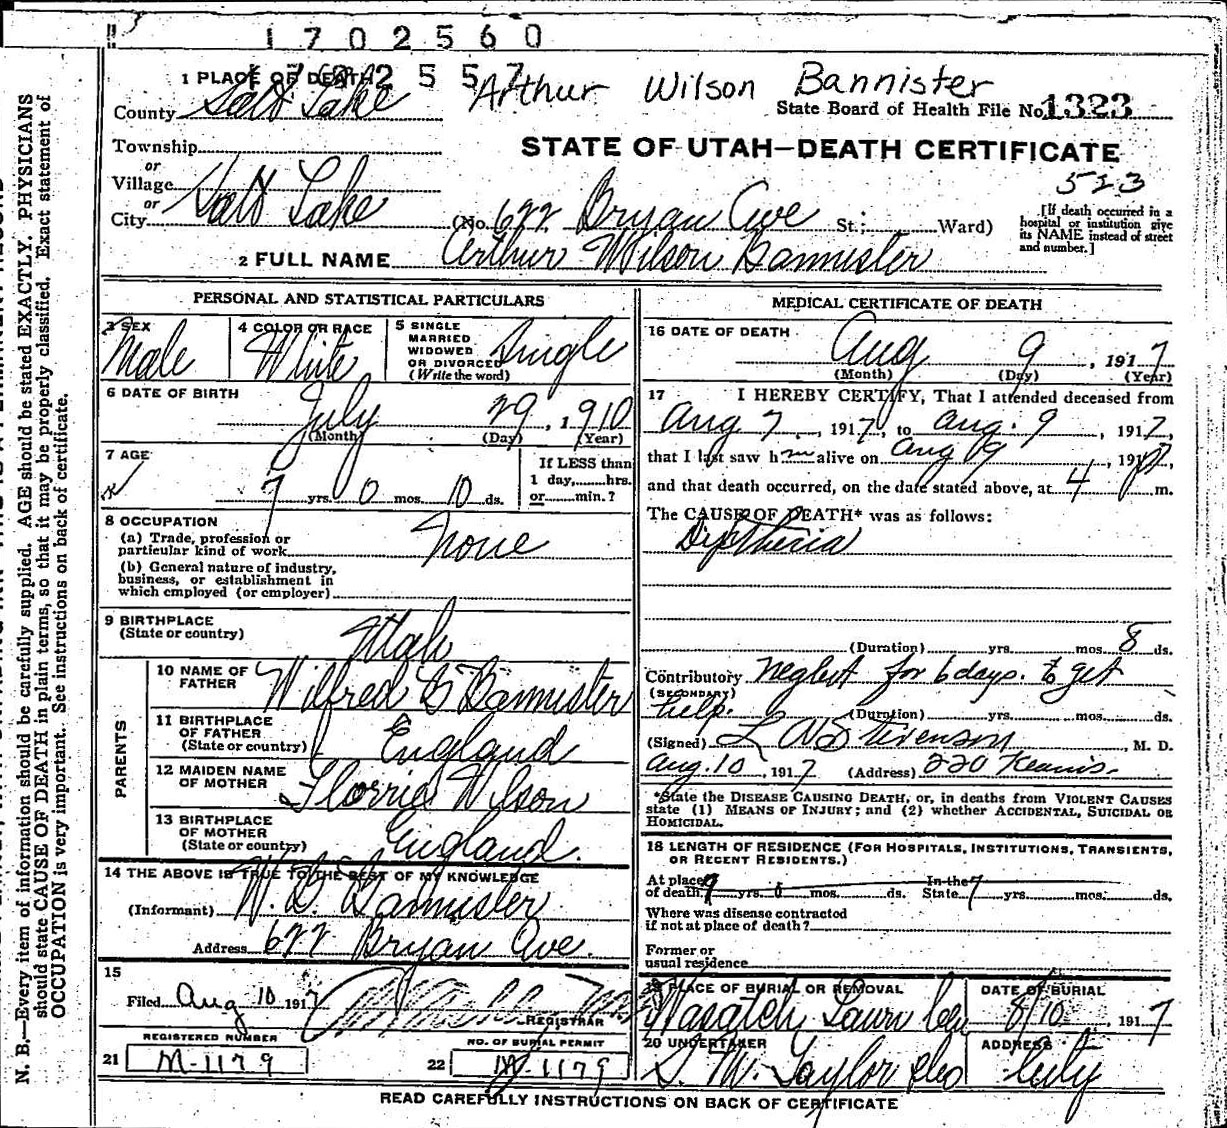 1702560
1702557
Arthur Wilson Bannister
1 PLACE OF DEATH
County Salt Lake
State Board of Health File No. 1323
Township
or
Village
or
City Salt Lake
STATE OF UTAH—DEATH CERTIFICATE
523
(No. 622 Bryan Ave St.; Ward)
[If death occurred in a
hospital or institution give
its NAME instead of street
and number.]
2 FULL NAME Arthur Wilson Bannister
PERSONAL AND STATISTICAL PARTICULARS
3 SEX
Male
4 COLOR OR RACE
White
5 SINGLE
MARRIED
WIDOWED
OR DIVORCED
(Write the word)
Single
6 DATE OF BIRTH
July 29, 1910
(Month) (Day) (Year)
7 AGE
7 yrs. 0 mos. 10 ds.
If LESS than
1 day, hrs.
or min.?
8 OCCUPATION
(a) Trade, profession or
particular kind of work None
(b) General nature of industry,
business, or establishment in
which employed (or employer)
9 BIRTHPLACE
(State or country)
Utah
PARENTS
10 NAME OF
FATHER
Wilfred B Bannister
11 BIRTHPLACE
OF FATHER
(State or country)
England
12 MAIDEN NAME
OF MOTHER
Florrie Wilson
13 BIRTHPLACE
OF MOTHER
(State or country)
England.
14 THE ABOVE IS TRUE TO THE BEST OF MY KNOWLEDGE
(Informant) W. B. Bannister
Address 622 Bryan Ave.
15
Filed Aug 10 1917
REGISTRAR
REGISTERED NUMBER
21 M-1179
NO. OF BURIAL PERMIT
22 M-1179
MEDICAL CERTIFICATE OF DEATH
16 DATE OF DEATH
Aug 9, 1917
(Month) (Day) (Year)
17 I HEREBY CERTIFY, That I attended deceased from
Aug 7, 1917, to Aug. 9, 1917,
that I last saw him alive on Aug 9, 1917,
and that death occurred, on the date stated above, at 4 P m.
The CAUSE OF DEATH* was as follows:
Diptheria
(Duration) yrs. mos. 8 ds.
Contributory neglect for 6 days. to get
(SECONDARY)
help.
(Duration) yrs. mos. ds.
(Signed) L W Stevenson, M. D.
Aug. 10, 1917 (Address) 220 Kearns.
*State the DISEASE CAUSING DEATH, or, in deaths from VIOLENT CAUSES
state (1) MEANS OF INJURY; and (2) whether ACCIDENTAL, SUICIDAL OR
HOMICIDAL.
18 LENGTH OF RESIDENCE (FOR HOSPITALS, INSTITUTIONS, TRANSIENTS,
OR RECENT RESIDENTS.)
At place
of death yrs. mos. ds.
In the
State 7 yrs. mos. ds.
Where was disease contracted
if not at place of death?
Former or
usual residence
19 PLACE OF BURIAL OR REMOVAL
Wasatch Lawn Cem
DATE OF BURIAL
8/10, 1917
20 UNDERTAKER
S. M. Taylor & Co
ADDRESS
City
READ CAREFULLY INSTRUCTIONS ON BACK OF CERTIFICATE
N. B.—Every item of information should be carefully supplied. AGE should be stated EXACTLY. PHYSICIANS
should state CAUSE OF DEATH in plain terms, so that it may be properly classified. Exact statement of
OCCUPATION is very important. See instructions on back of certificate.